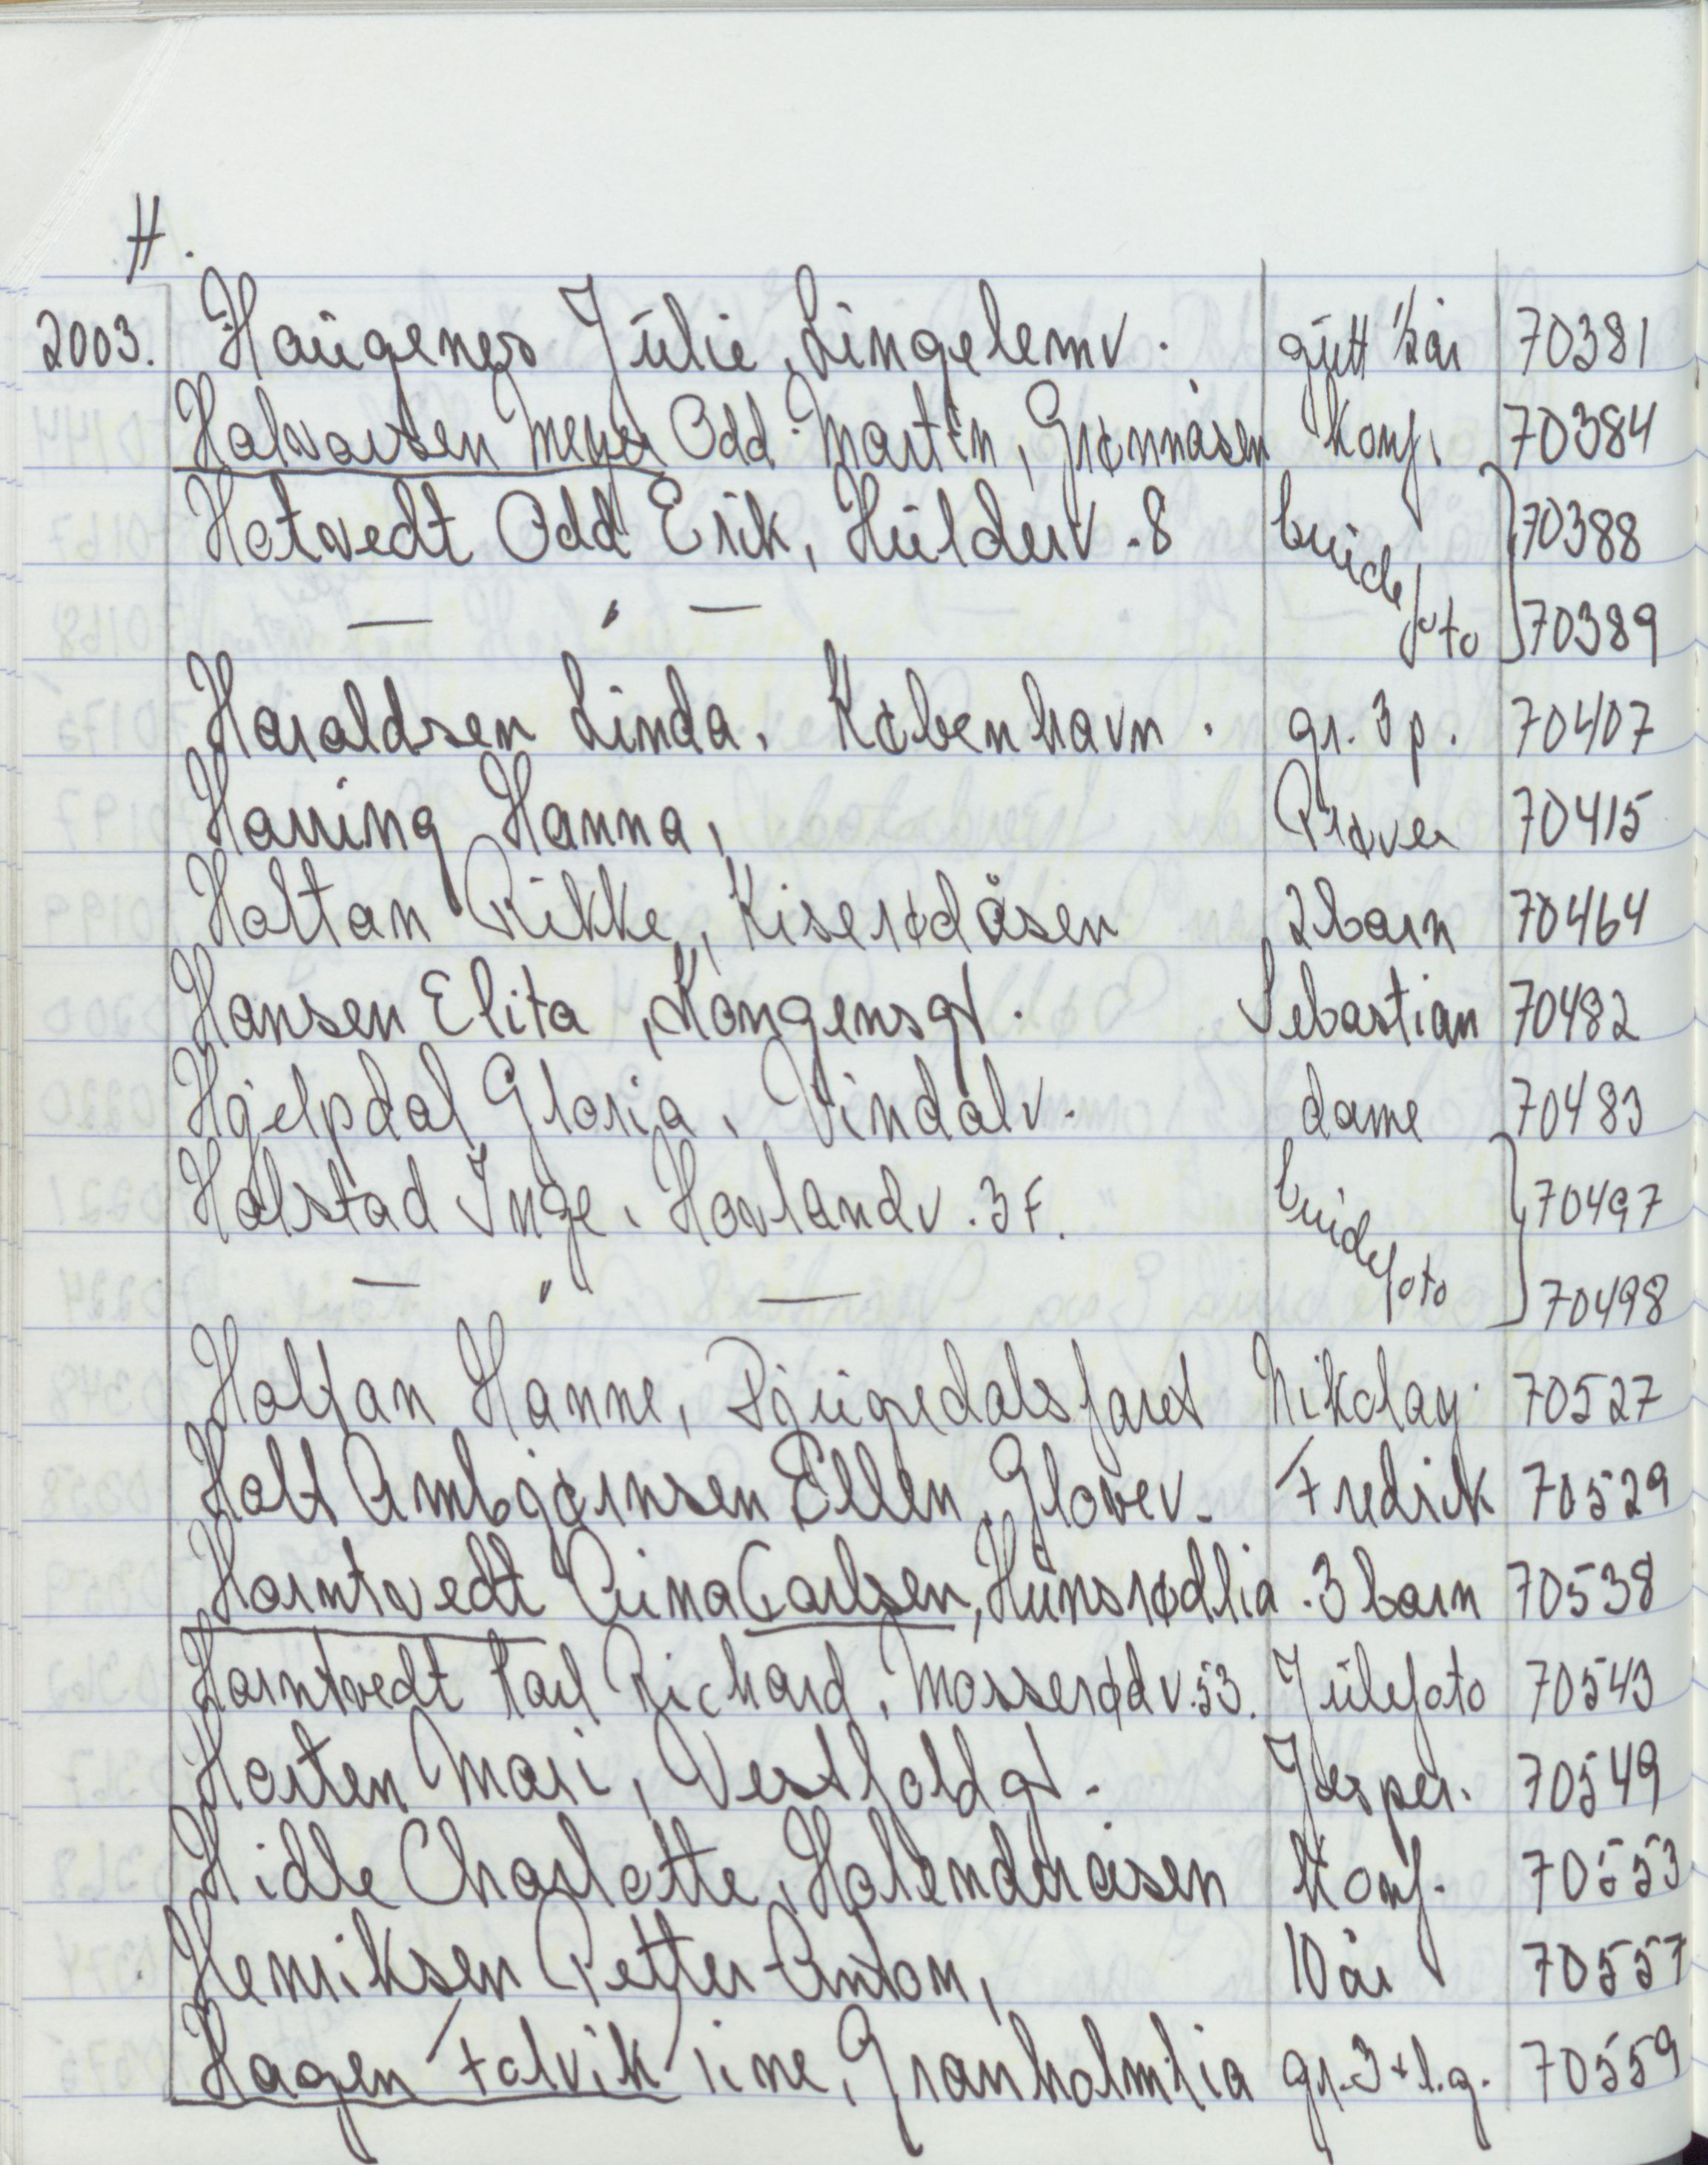 H.
2003. Haugenes Julie, Lingelemv. gutt 1/2 år 70381
Halvorsen Meyer Odd Martin, Grønnåsen Konf. 70384
Hotvedt Odd Erik, Hulderv. 8 brude 70388
— " — foto 70389
Haraldsen Linda, København. gr. 3 p. 70407
Harring Hanna, Prøver 70415
Holtan Rikke, Kiserødåsen 2 barn 70464
Hansen Elita, Kongensgt. Sebastian 70482
Hjelpdal Gloria, Vindalv. dame 70483
Halstad Inge, Hovlandv. 3F. brude 70497
— " — foto 70498
Holtan Hanne, Djupedalsfaret Nikolay 70527
Holt Ambjørnsen Ellen, Glover. Fredrik 70529
Horntvedt Rina Carlsen, Hunsrødlia. 3 barn 70538
Horntvedt Karl Richard, Mosserødv. 53. Julefoto 70543
Horten Mari, Vestfoldgt. Jesper. 70549
Hidle Charlotte, Holenderåsen Konf. 70553
Henriksen Petter Anton, 10 år 70557
Hagen Folvik Tine, Granholmlia gr. 3 + l.g. 70559